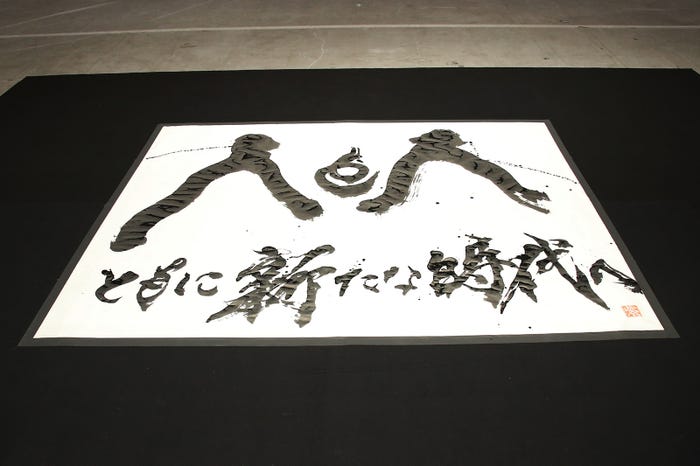 人と人
ともに新たな時代へ